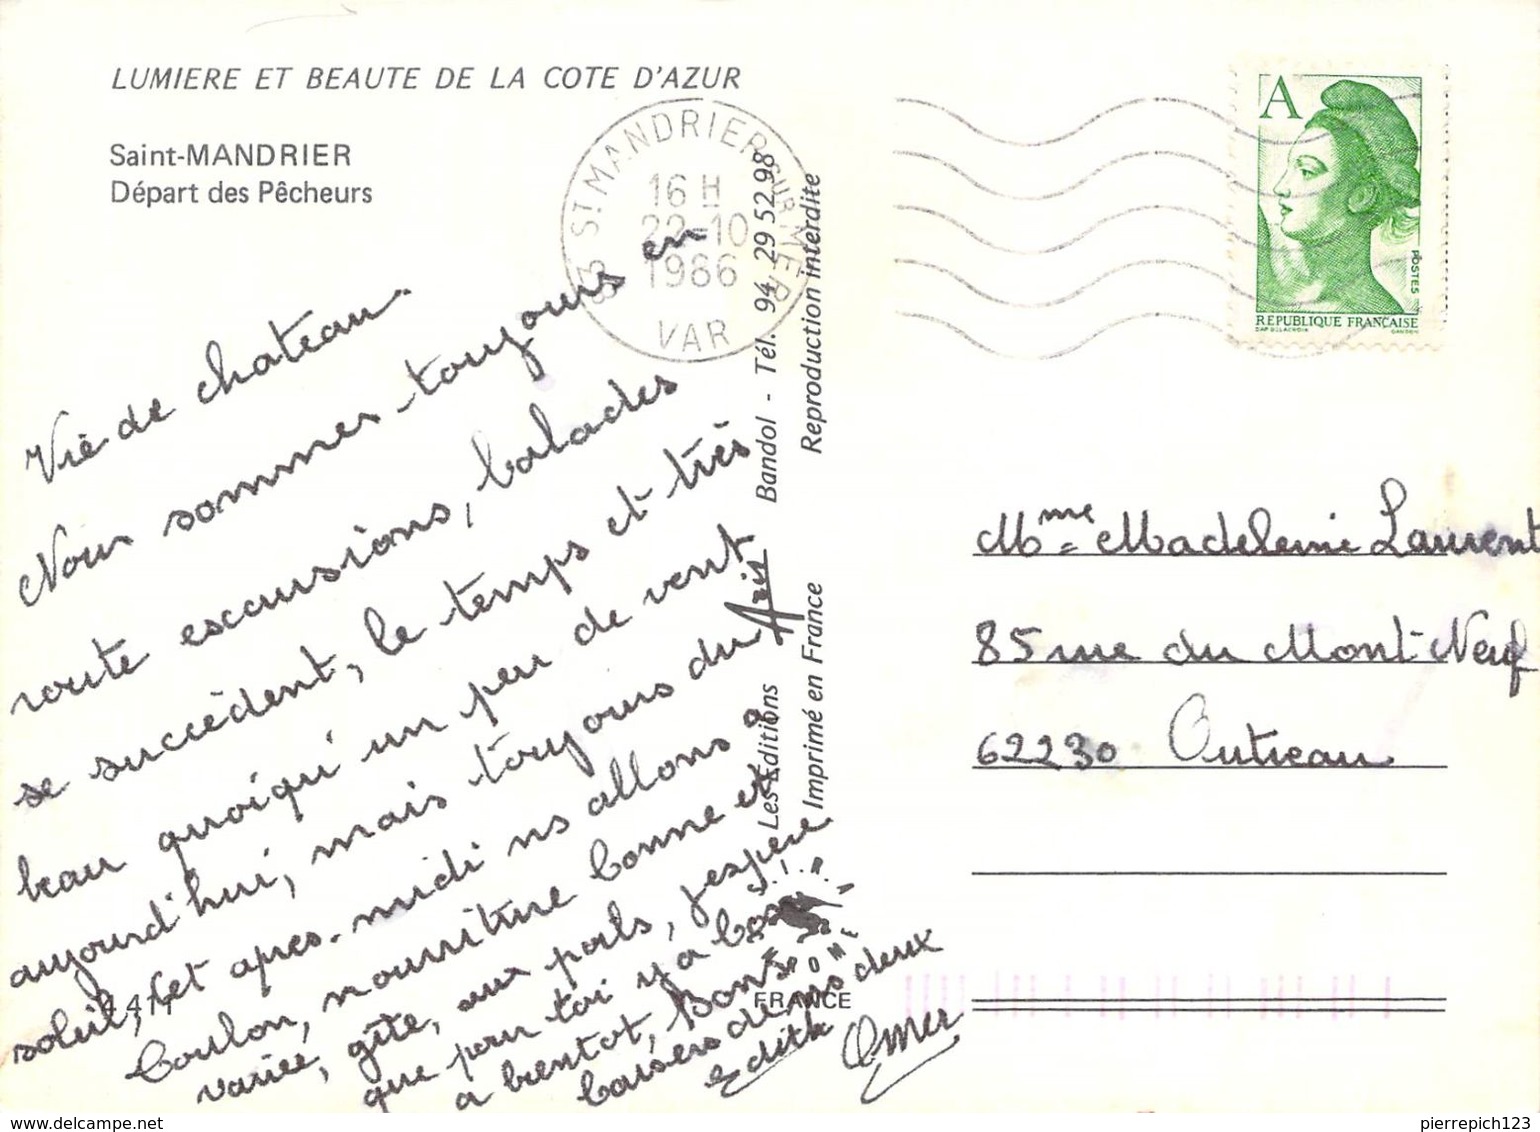 LUMIERE ET BEAUTE DE LA COTE D'AZUR
Saint-MANDRIER
Départ des Pêcheurs
83 ST MANDRIER SUR MER
16 H
22-10
1986
VAR
A
POSTES
REPUBLIQUE FRANÇAISE
DAP. DELACROIX
GANDON
Vie de chateau.
Nous sommes toujours en
route escursions, balades
se succèdent, le temps et très
beau quoiqu'un peu de vent
aujourd'hui, mais toujours du
soleil, et après-midi ns allons à
Toulon, nourriture bonne et
variée, gîte, aux poils, j'espère
que pour toi y a bon
a bientot, Bons
baisers de nous deux
Edith Omer
Les Editions Aris Bandol - Tél. 94 29 52 98
Imprimé en France Reproduction interdite
FRANCE
Mme Madeleine Laurent
85 rue du Mont-Neuf
62230 Outreau
pierrepich123